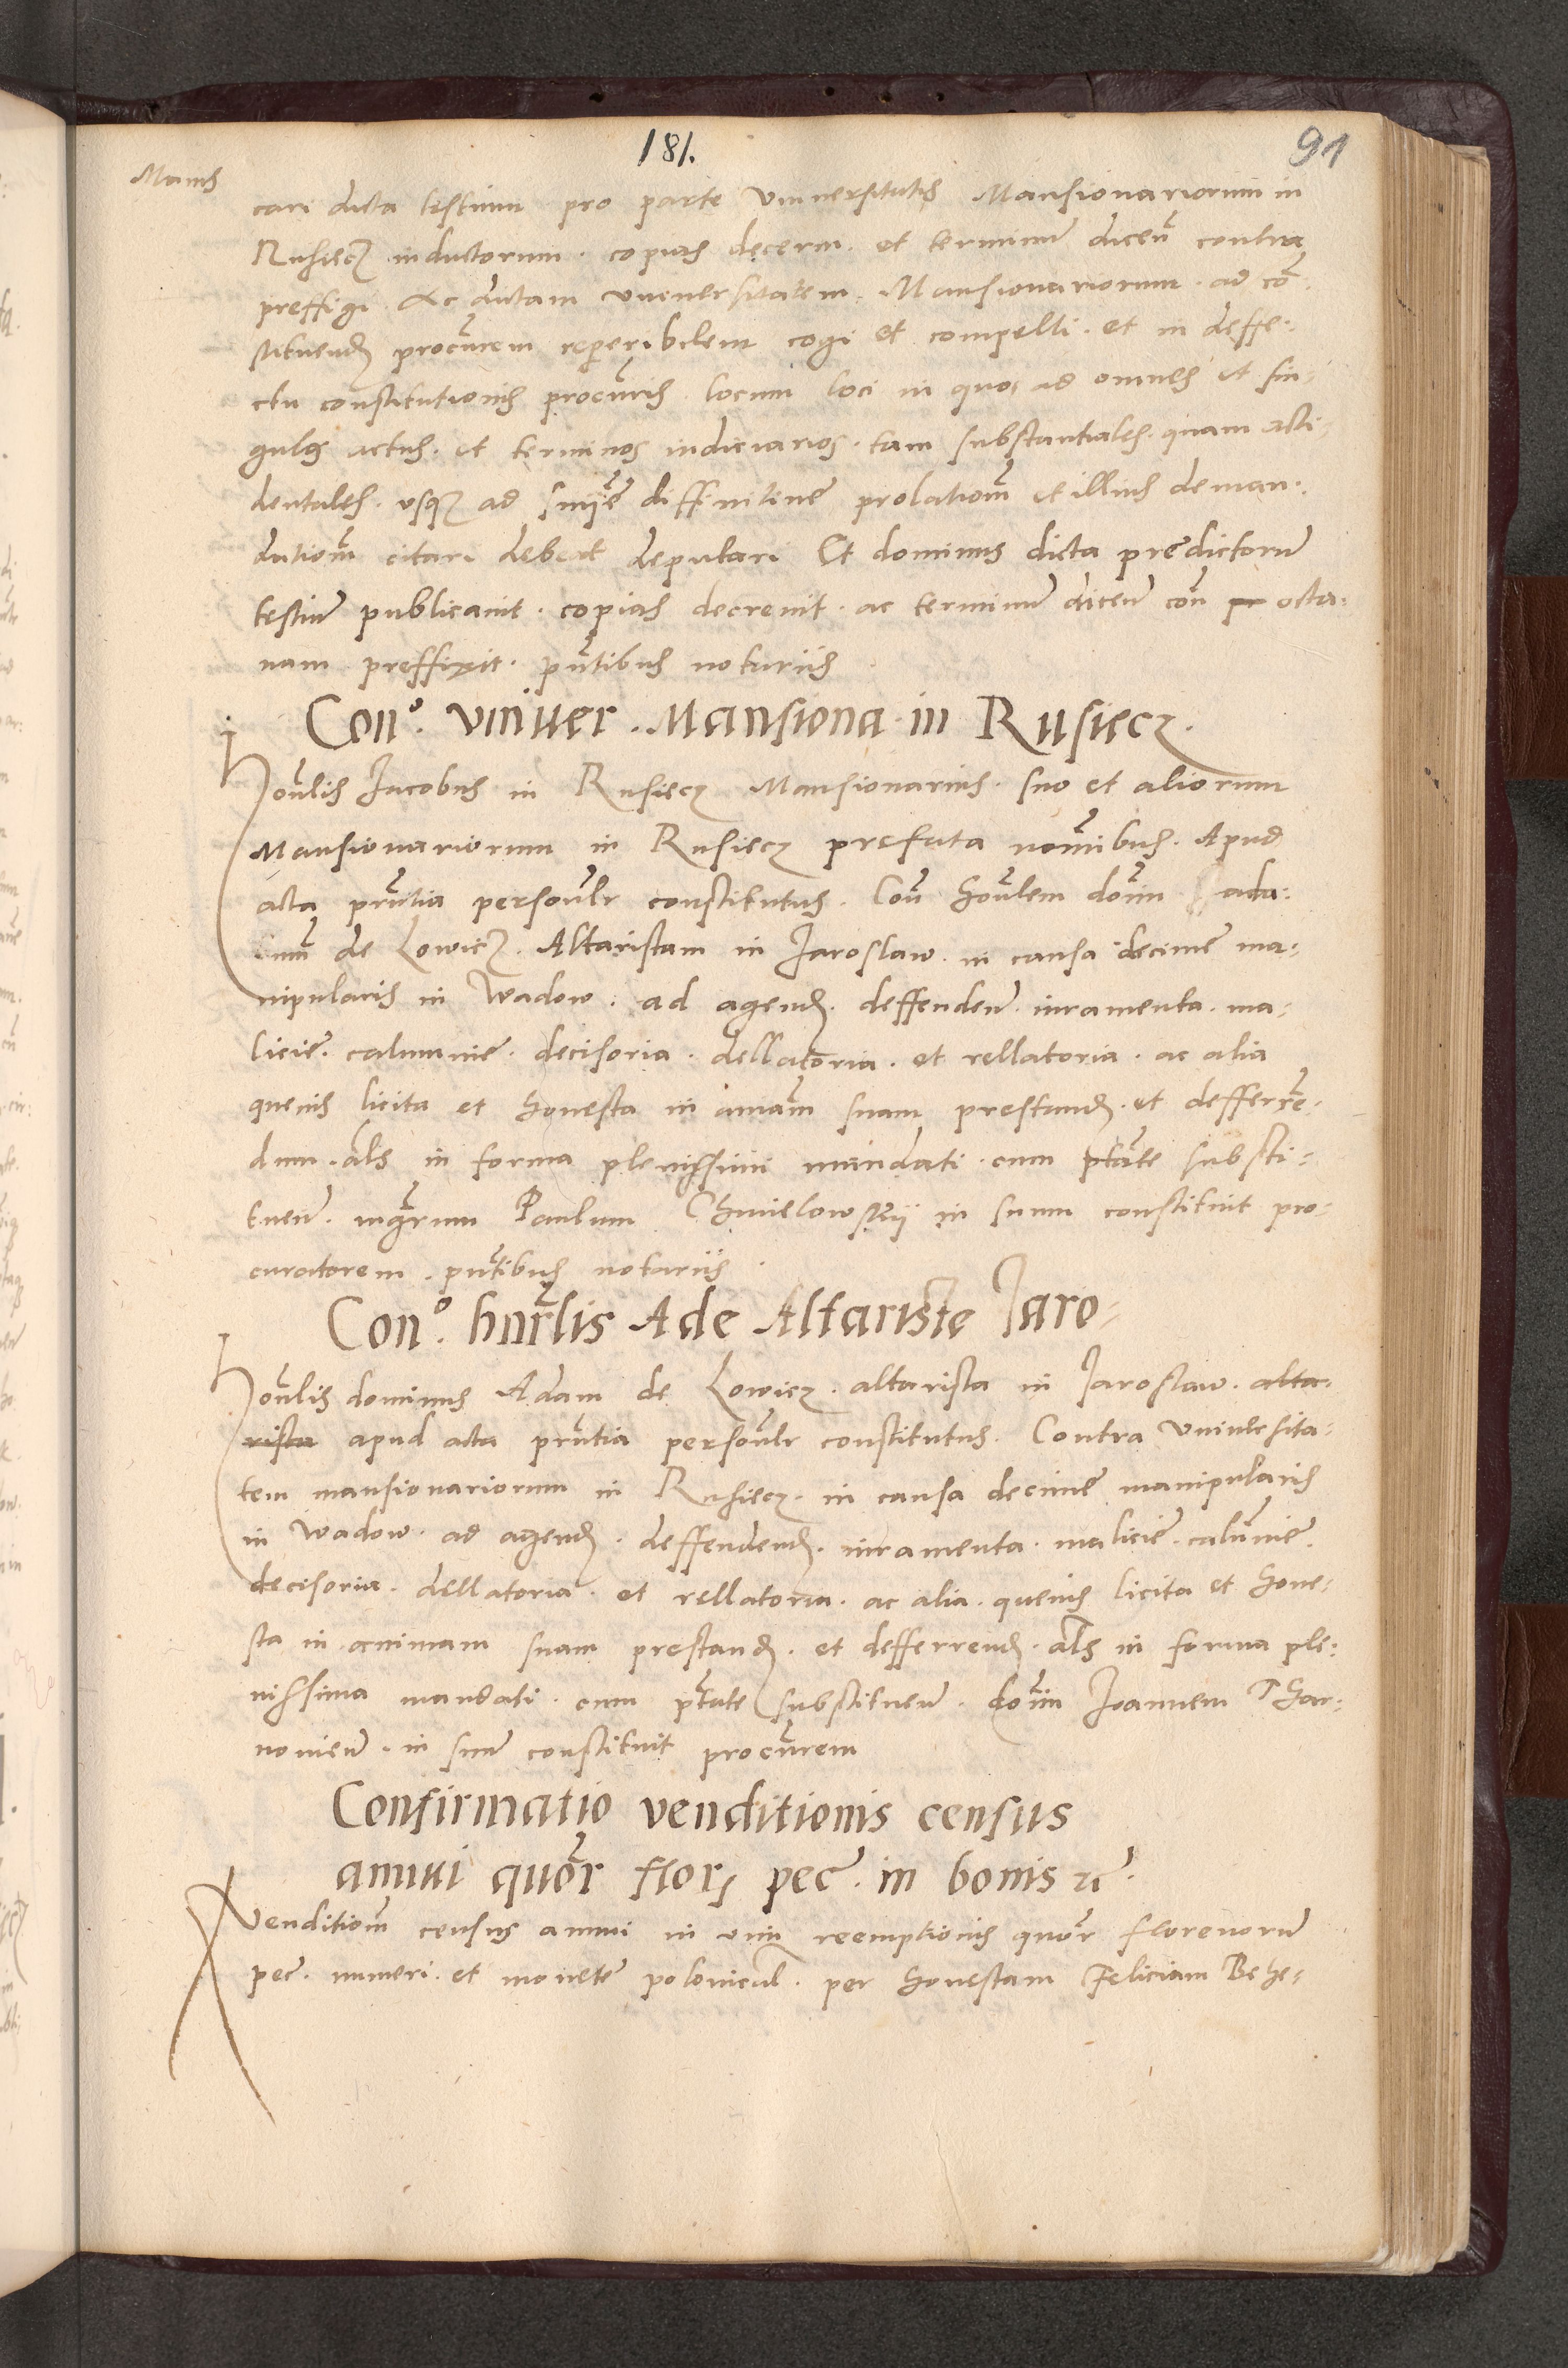 181.
91
cari dicta testium pro parte Universitatis Mansionariorum in
Rusiecz inductorum. copias decerni. et terminum dicen̄ contra
preffigi. Ac dictam universitatem. Mansionariorum. ad con̄
stituend procur̄em reperibilem cogi et compelli. et in deffe-
ctu constitutionis procur̄is locum loci in quo. ad omnes et sin-
gulos actus. et terminos iudiciarios. tam substantiales. quam acti-
dentales. usq3 ad sn̄ie diffinitiue prolatiom̄ et illius deman-
datiom̄ citari debeat deputari Et dominus dicta predictoru̅
testiu̅ publicauit. copias decreuit. ac terminu̅ dicen̅ con̄ octa-
uam preffixit. pn̄tibus notariis
Con°. Univer. Mansiona. in Rusiecz.
hon̄lis Jacobus in Rusiecz Mansionarius. suo et aliorum
Mansionariorum in Rusiecz prefata nom̄ibus. Apud
acta prn̄tia person̄lr constitutus. Con̄ hon̄lem dom̄
de Lowicz. Altaristam in Jaroslaw. in causa decime ma-
nipularis in Wadow. ad agend. deffenden̄. iuramenta. ma-
licie. calumnie. decisoria. dellatoria. et rellatoria. ac alia
queuis licita et honesta in aniam̄ suam prestand. et defferre̅-
dum. al̄s in forma plenissimi mandati. cum ptāte substi-
tuen̄. mgr̄um Paulum Chmielowskij in suum constituit pro-
curatorem. pn̄tibus notariis
Con°. hon̄lis Ade Altariste Jaro-
hon̄lis dominus Adam de Lowicz. altarista in Jaroslaw. alta-
rista apud acta prn̄tia person̄lr constitutus. Contra Universita-
tem mansionariorum in Rusiecz. in causa decime manipularis
in Wadow. ad agend. deffendend. iuramenta. malicie. calūnie.
decisoria. dellatoria. et rellatoria. ac alia. queuis licita et hone-
sta in animam suam prestand. et defferrend. al̄s in forma ple-
nissima mandati. cum pt̄ate substituen̄. dom̄ Joannem Thar-
nouien̄. in suu̅ constituit procur̄em
Confirmatio venditionis census
annui quōr flor. pec̄. in bonis &c̄.
Venditiom̄ census annui in vim reemptionis quōr florenoru̅
pec̄. numeri. et monete polonical̄. per honestam Feliciam Beze-